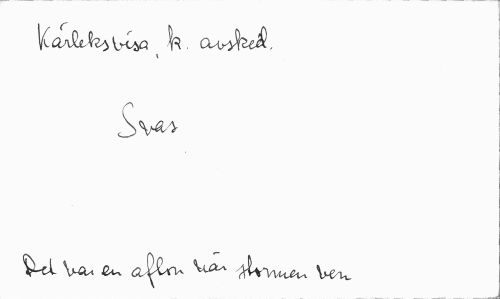 Kärleksvisa, k. avsked.
Svas
Det var en afton när stormen ven